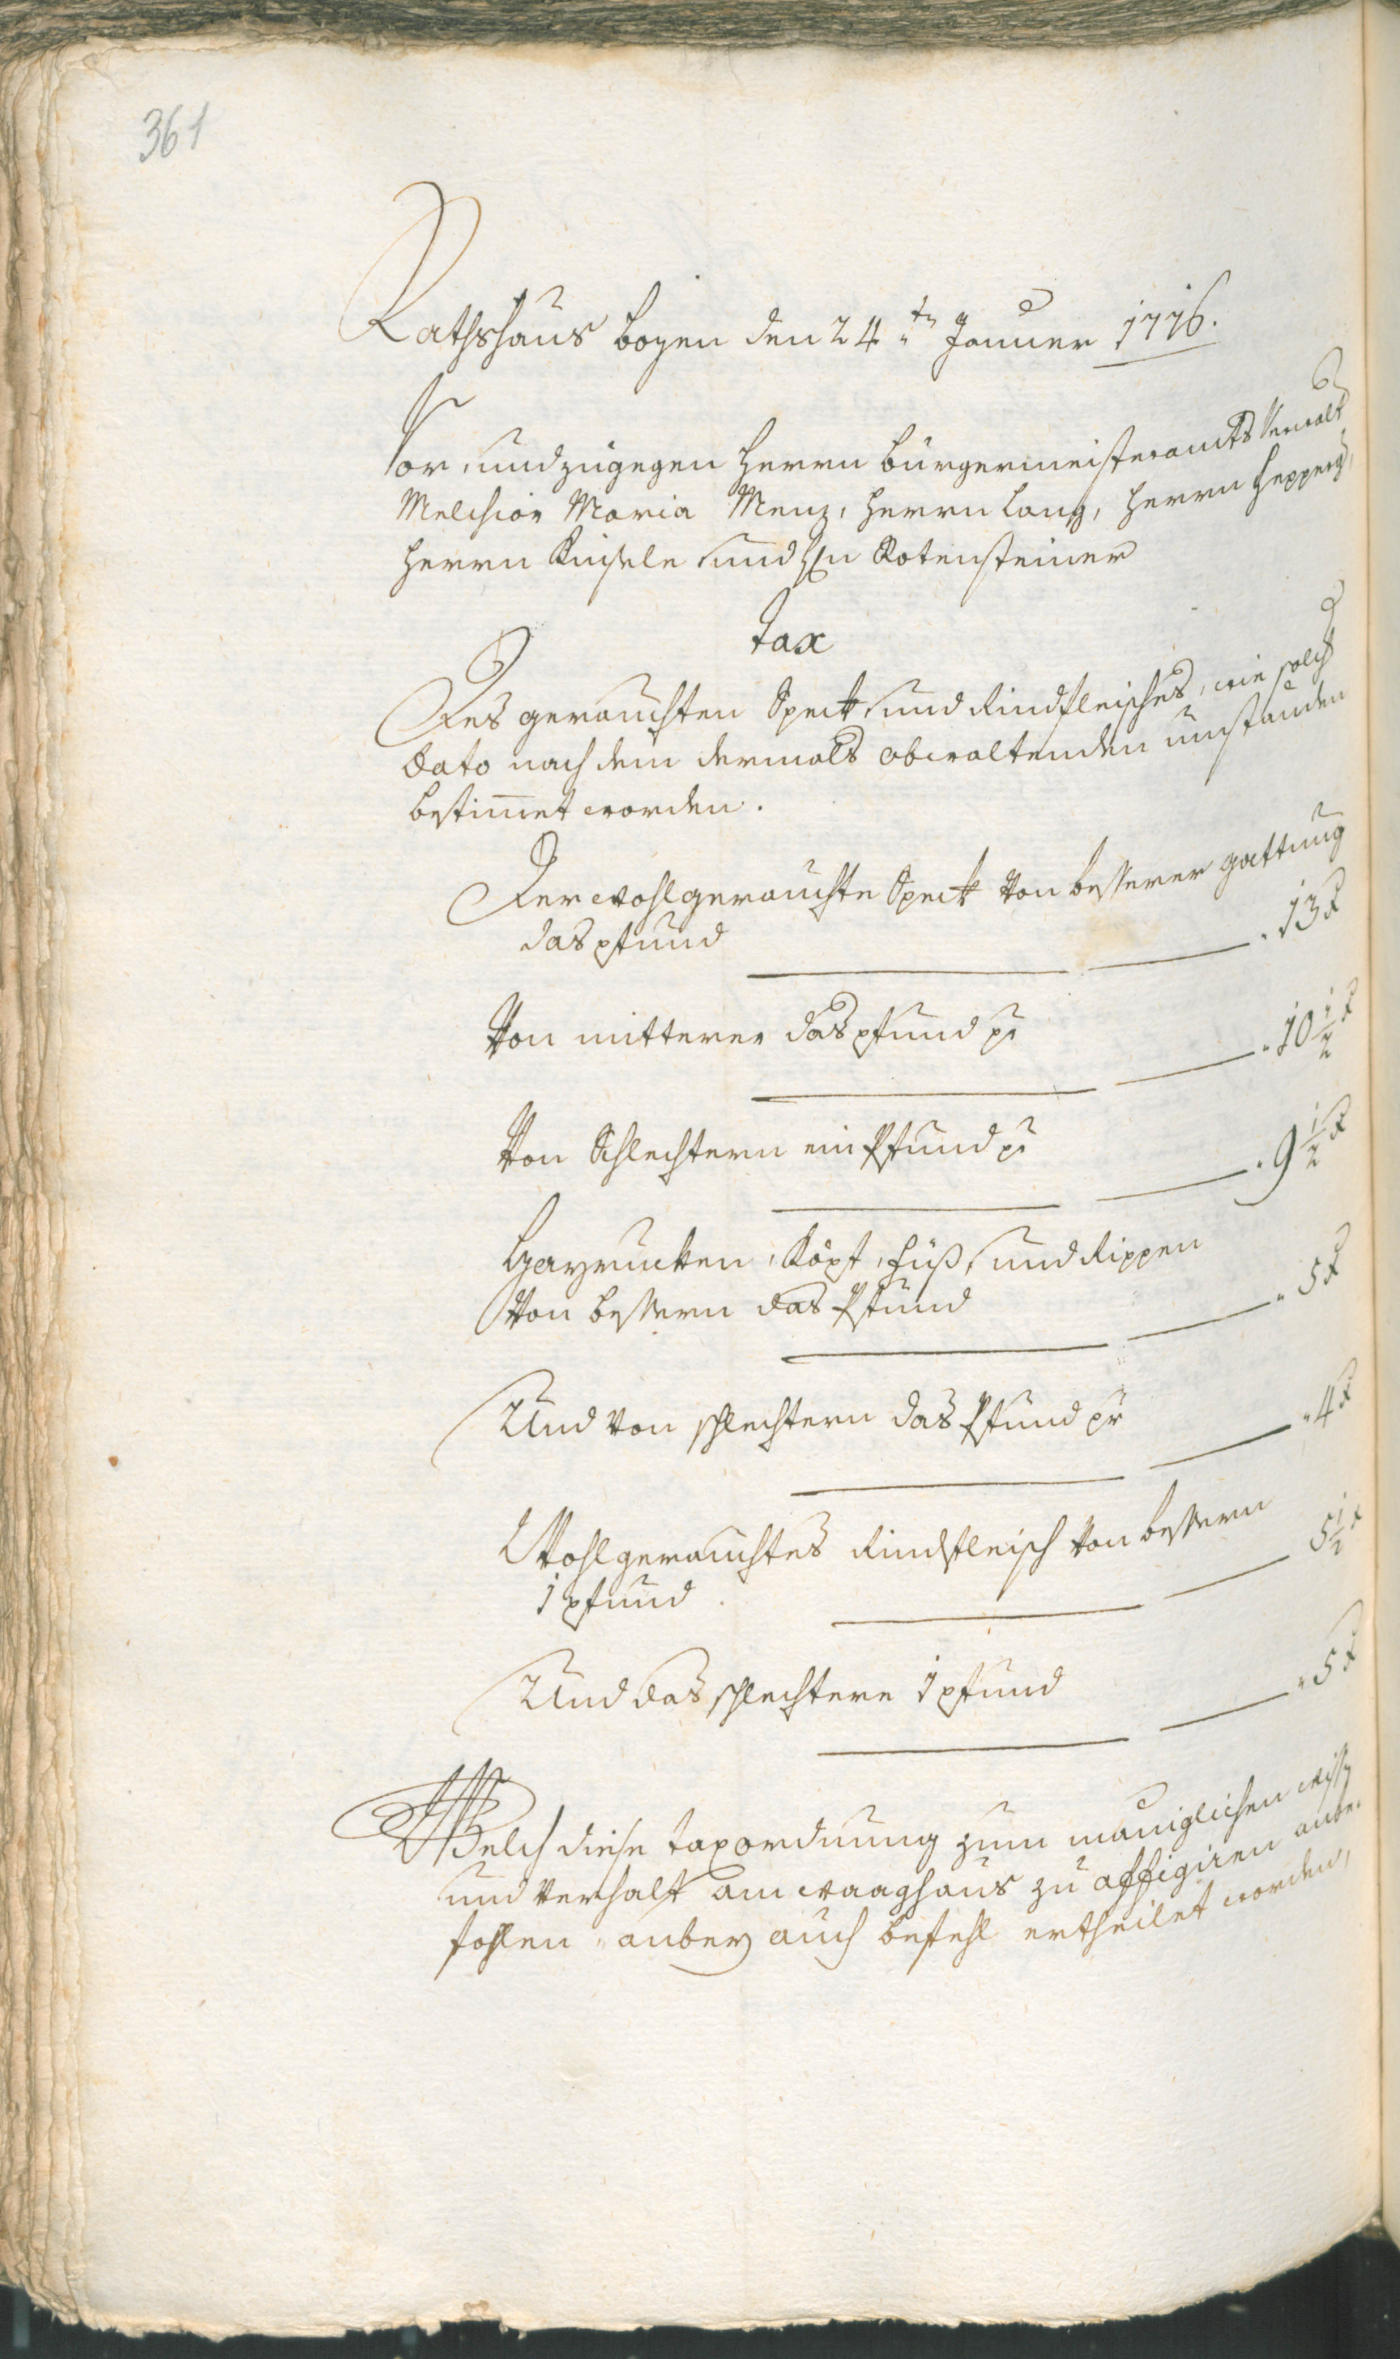 361
Rathshaus Bozen den 24.ten Januer 1776.
Vor, und zugegen Herrn Burgermeisteramts Verwalt
Melchior Maria Menz, Herrn Lang, Herrn Hepperg,
Herrn Kinsele und Hn Rotensteiner
Tax
Des geräuchten Speck, und Rindfleisches, wie solch
Dato nach dem dermals obwaltenden umständen
bestim̅et worden.
Der wohlgeräuchte Speck von besserer gattung
das pfund . 13 x
Von mitterer das pfund pr . 10 1/2 x
Von Schlechtern ein Pfund pr . 9 1/2 x
Hayrucken, Köpf, Füß, und Rippen
Von bessern das Pfund . 5 x
Und von schlechtern das Pfund pr . 4 x
Wohlgerauchtes Rindfleisch von bessern
1 pfund . 5 1/2 x
Und das schlechtere 1 pfund . 5 x
Welch diese taxordnung zum mäniglichen wissen
und verhalt am waaghaus zu affigiren anbe-
fohlen, anbey auch befehl ertheilet worden,